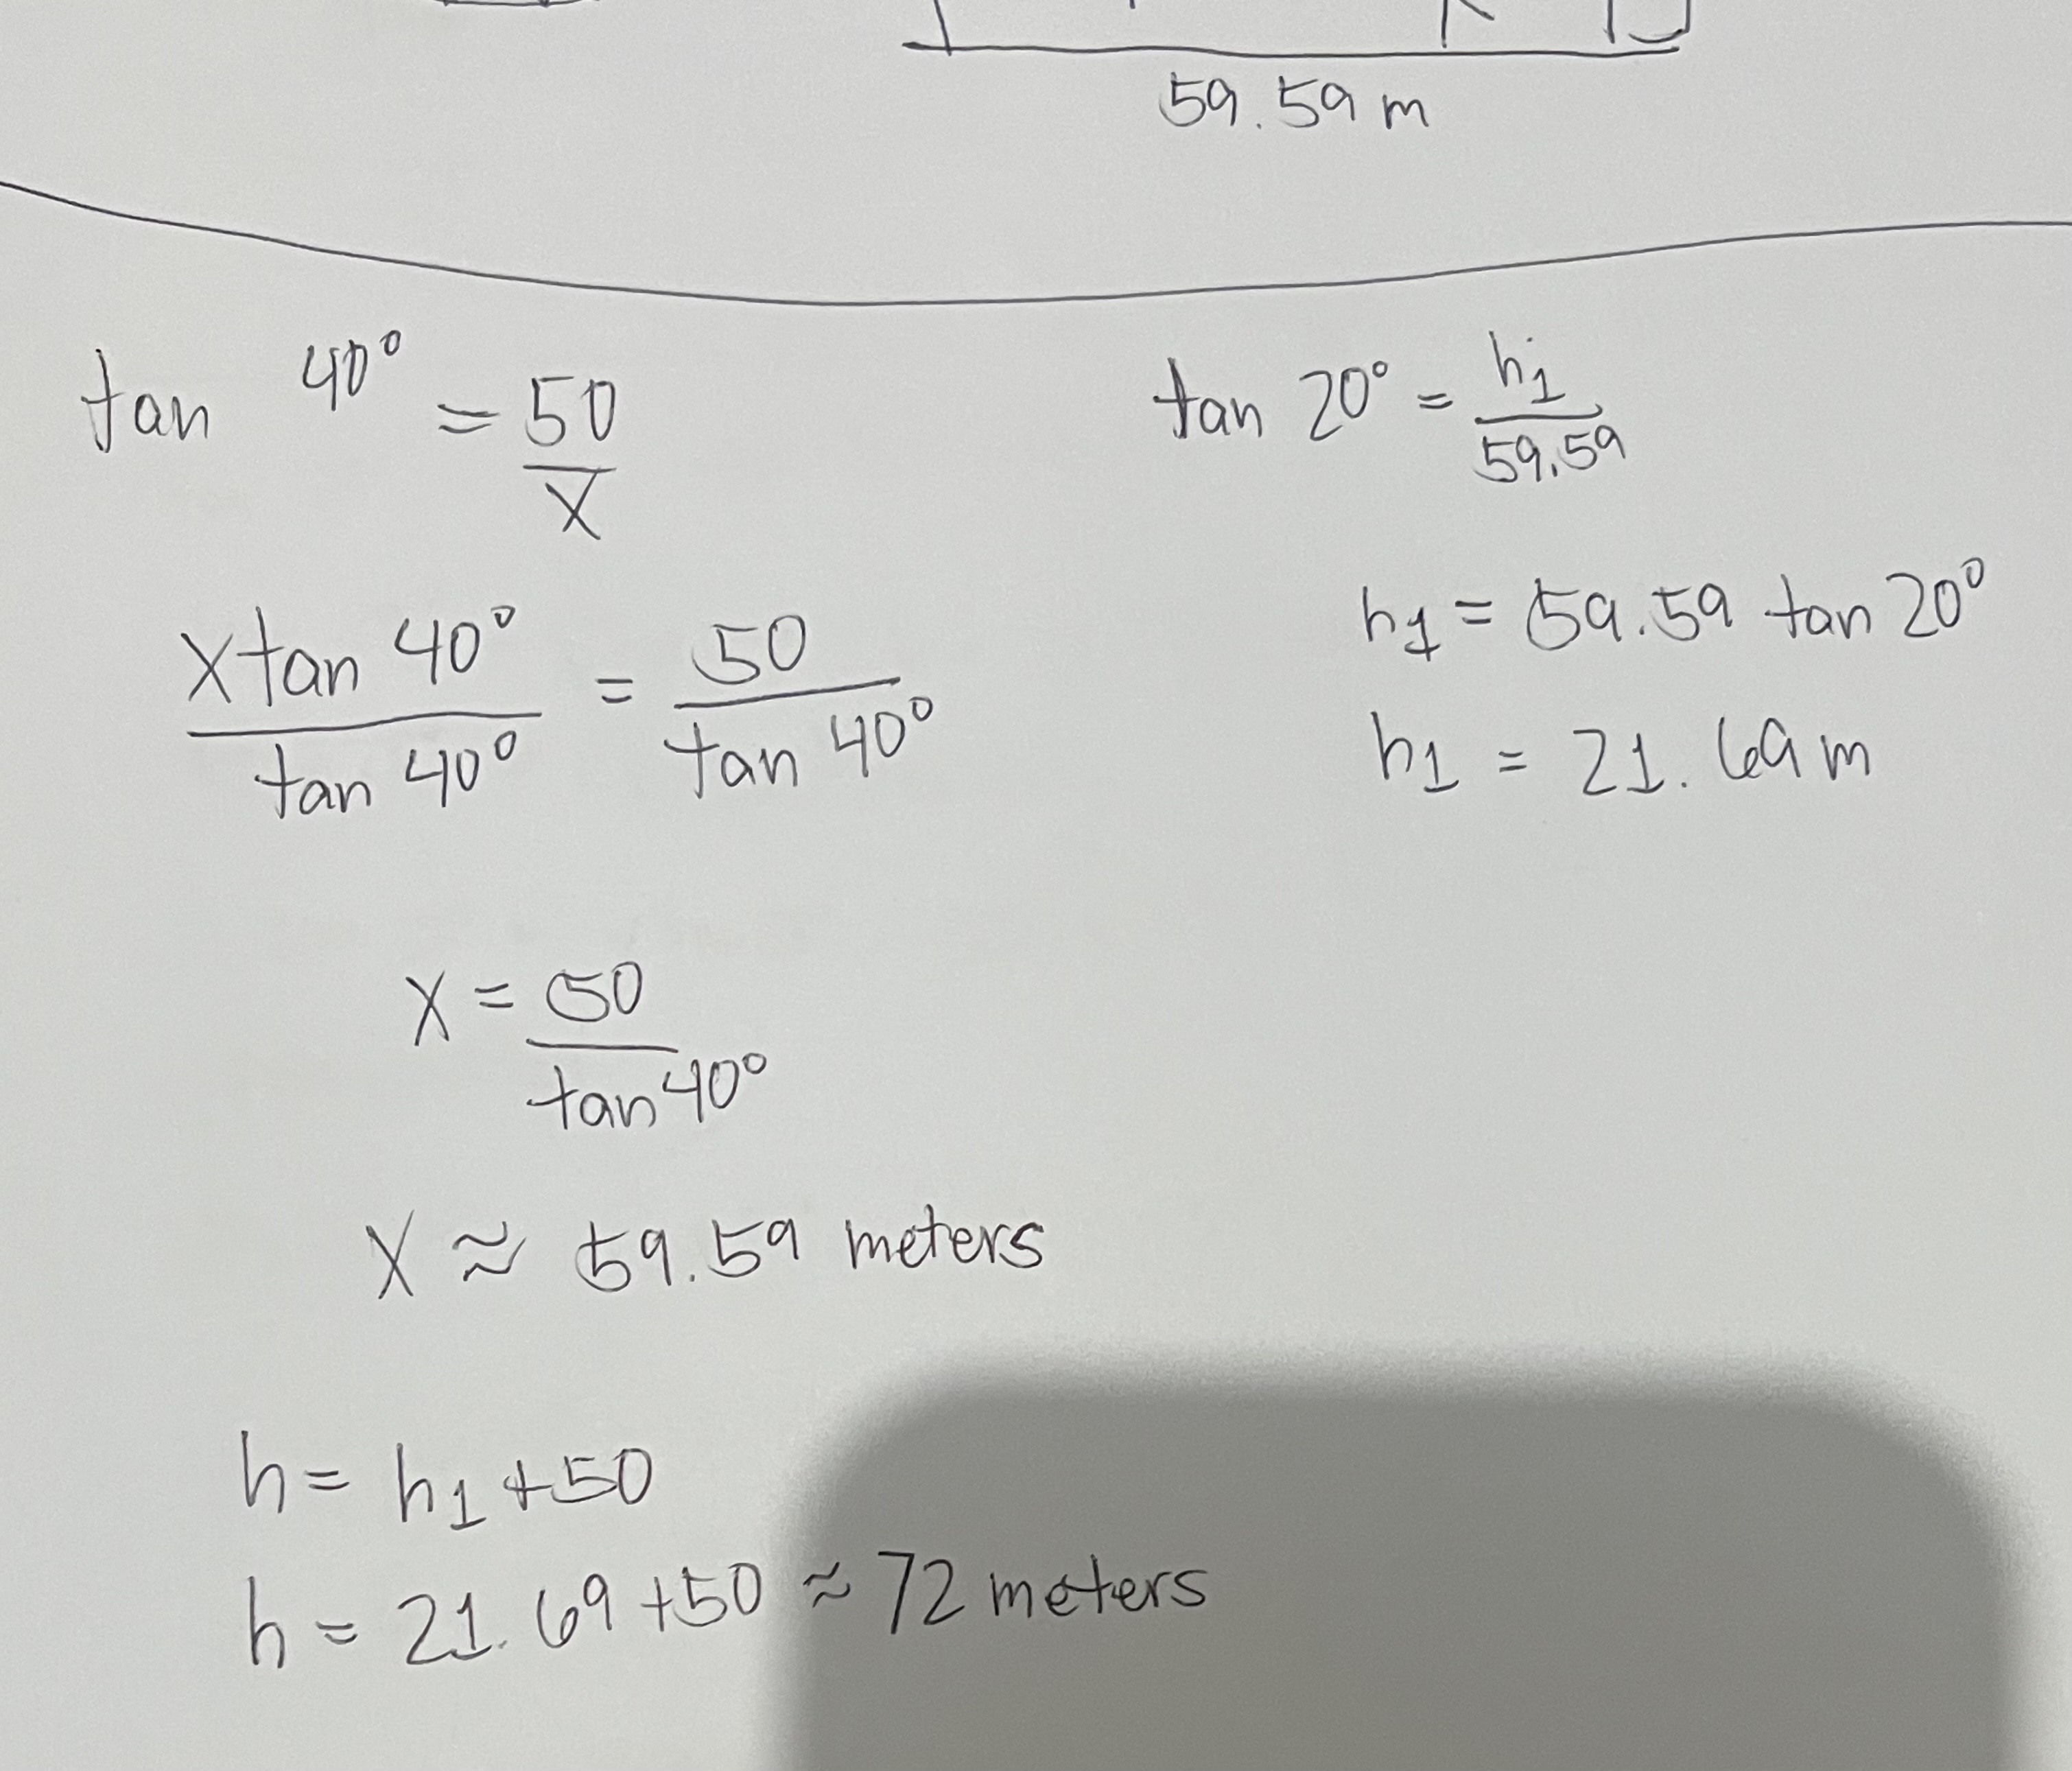 59.59 m
tan 40° = 50/x
x tan 40°/tan 40° = 50/tan 40°
x = 50/tan 40°
x ≈ 59.59 meters
tan 20° = h₁/59.59
h₁ = 59.59 tan 20°
h₁ = 21.69 m
h = h₁ + 50
h = 21.69 + 50 ≈ 72 meters